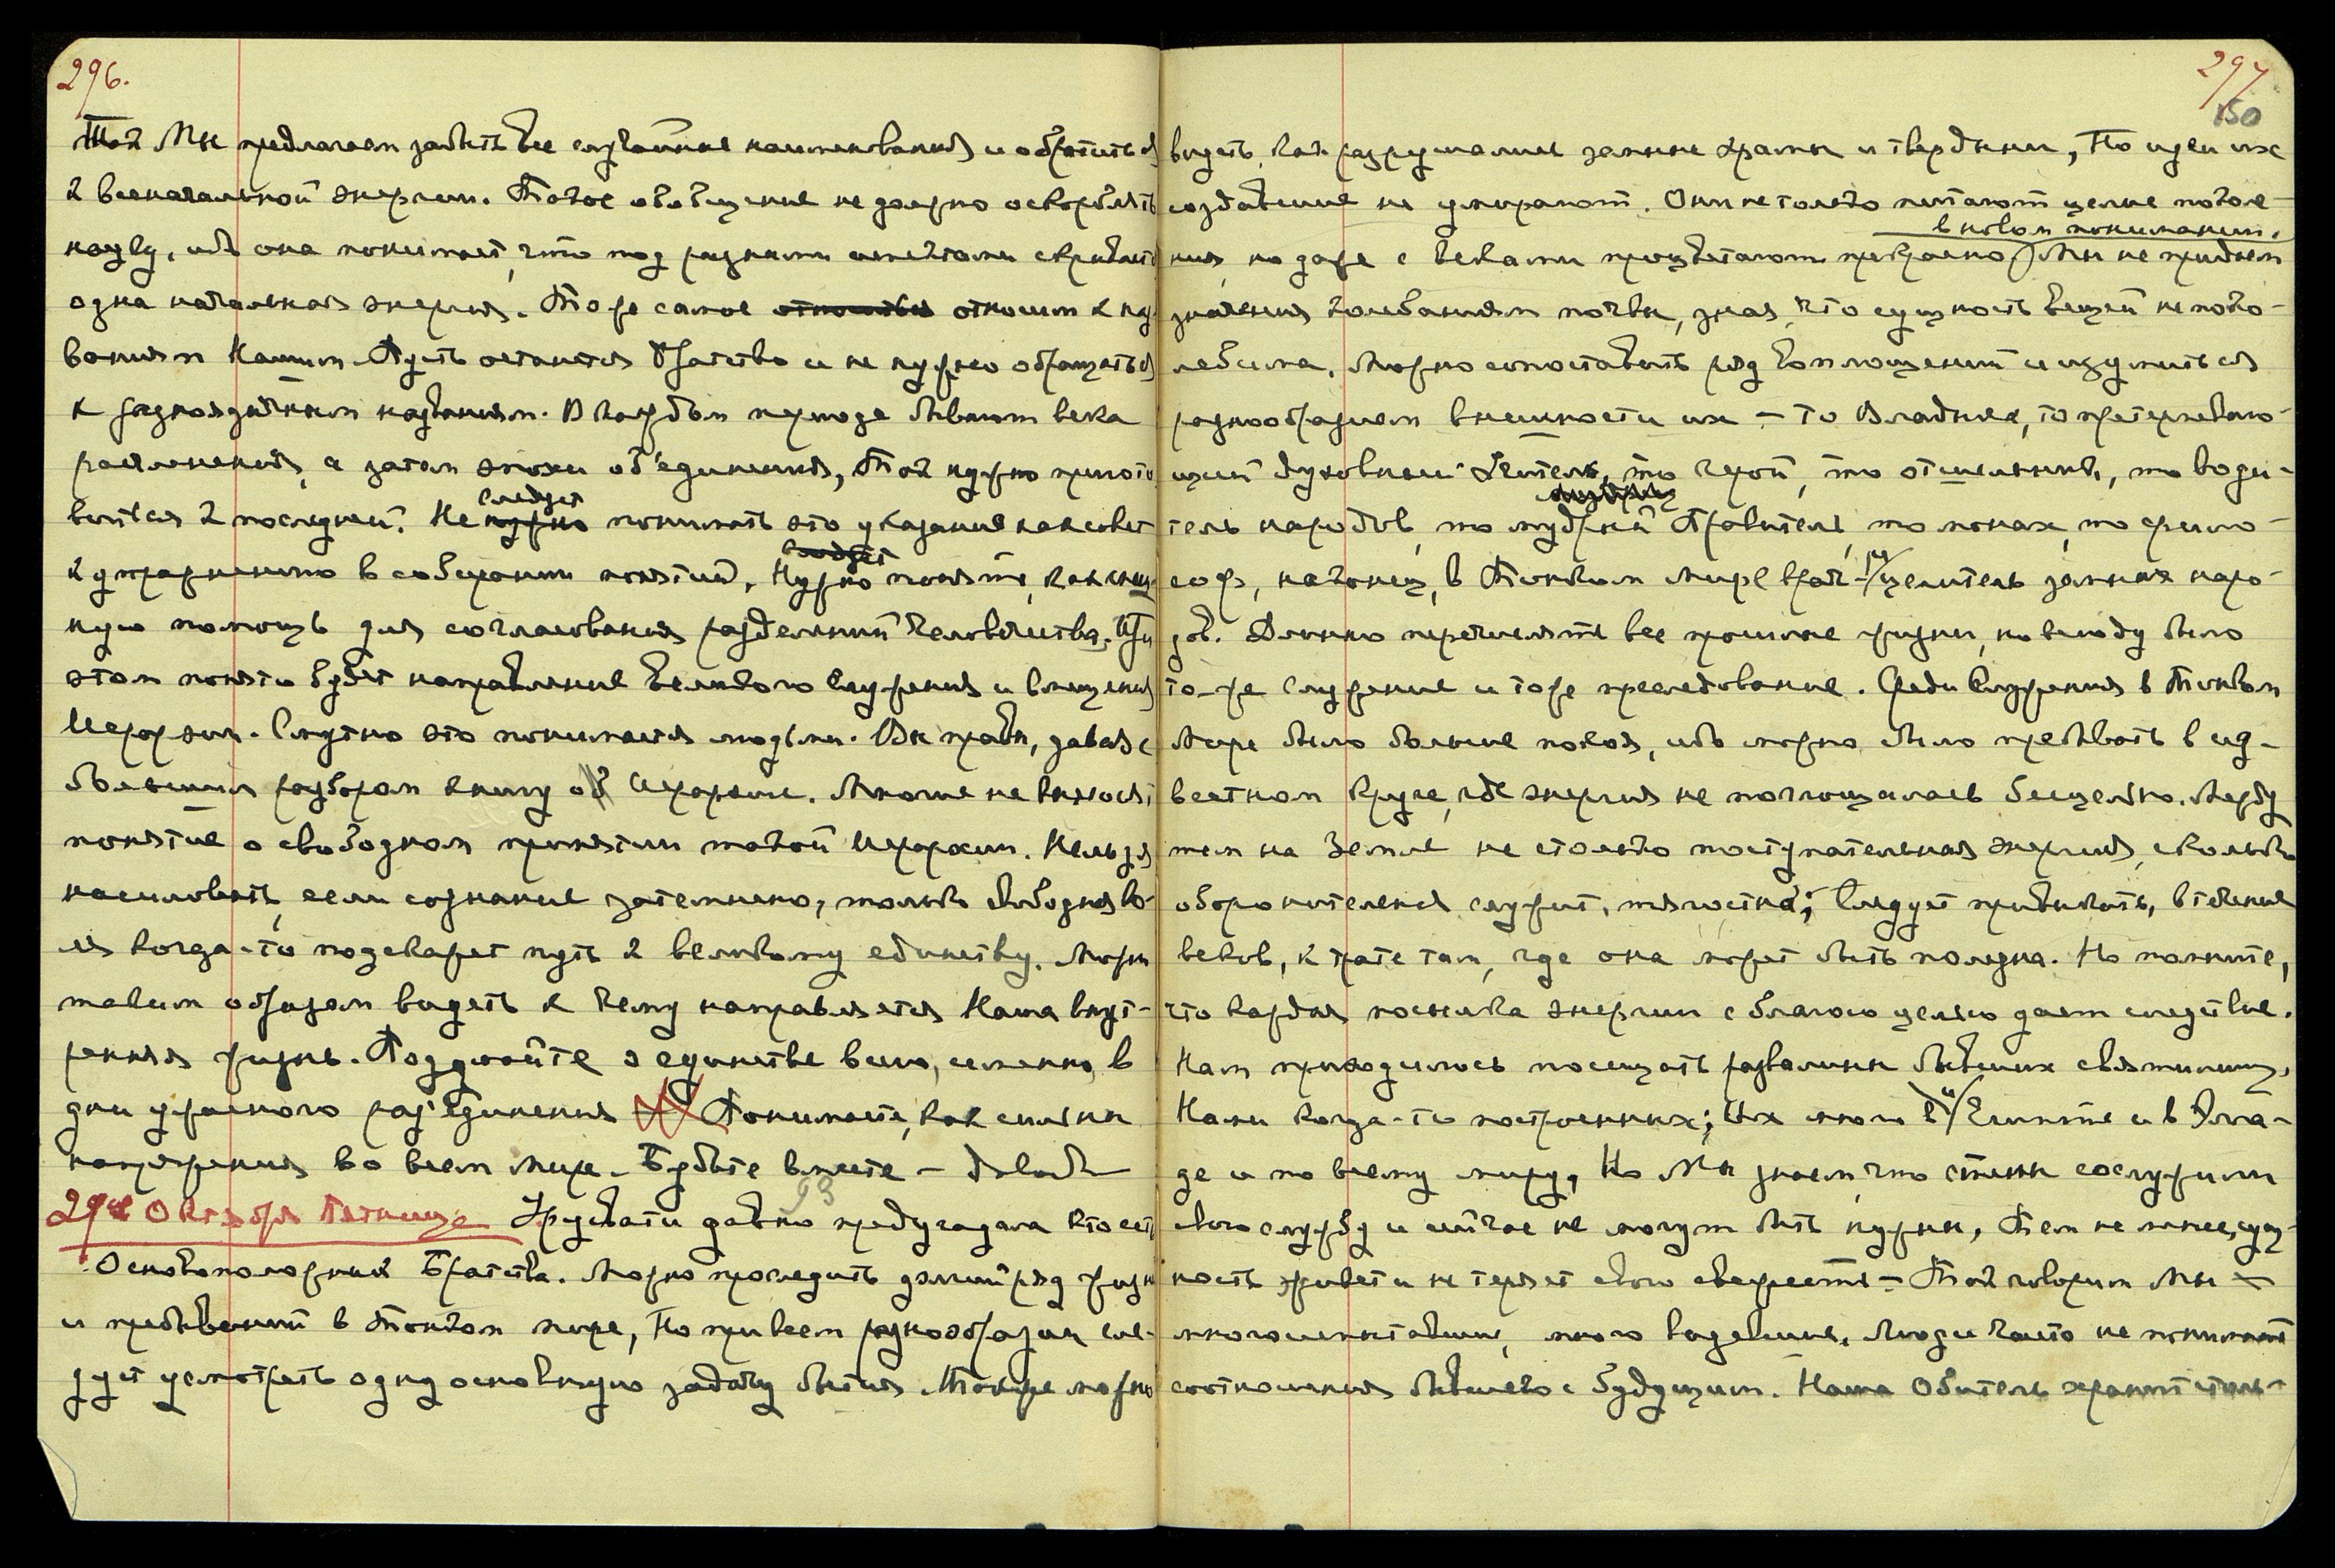 296.
Так Мы предлагаем забыть все случайные наименования и обратиться
к всеначальной энергии. Такое обобщение не должно оскорблять
науку, ибо она понимает, что под разными аспектами скрывается
одна начальная энергия. То же самое относим к наз-
ваниям Нашим. Пусть останется Братство и не нужно обращаться
к разноязычным названиям. В каждом периоде бывают века
расчленения, а затем эпохи об'единения, Так нужно пригото-
виться к последней. Не следует понимать это указание как совет
к упражнению в собирании понятий, Нужно понять, как насущ-
ную помощь для согласования разделений человечества. При
этом понято будет направление великого служения и вмещения
Иерархии. Смутно это понимается людьми. Вы правы, давая с
большим разбором книгу об Иерархии. Многие не вынесли
понятие о свободном принятии такой Иерархии. Нельзя
насиловать, если сознание затемнено, только свободная во-
ля когда-то подскажет путь к великому единству. Можно
таким образом видеть к чему направляется Наша внут-
ренняя жизнь. Подумайте о единстве всего, именно, в
дни ужасного раз'единения Понимаете, как сильны
напряжения во всем мире. Будьте вместе – довольно
93
29ое Октября Пятница Урусвати давно предугадала кто есть
Основоположник Братства. Можно проследить долгий ряд жизней
и пребываний в Тонком мире, Но при всем разнообразии сле-
дует усмотреть одну основную задачу бытия. Также можно
297
150
видеть, как разрушались земные храмы и твердыни, Но идеи их
создавшие не умирают. Они не только питают целые поколе-
ния, но даже с веками процветают прекрасно в новом понимании. Мы не придаем
значения колебаниям почвы, зная, что сущность вещей непоко-
лебима. Можно сопоставить ряд воплощений и изумиться
разнообразием внешности их – то Владыка, то претерпеваю-
щий духовный деятель, то герой, то отшельник, то води-
тель народов, то мудрый Правитель, то монах, то фило-
соф, наконец, в Тонком мире врач и целитель земных наро-
дов. Длинно перечислять все прошлые жизни, но всюду было
то-же служение и то же преследование. Среди служения в Тонком
Мире было больше покоя, ибо можно было пребывать в из-
вестном круге, где энергия не поглощалась бесцельно. Между
тем на Земле не столько поступательная энергия, сколько
оборонительная служит, тягостна; Следует привыкать, в течение
веков, к трате там, где она может быть полезна. Но помните,
что каждая посылка энергии с благою целью дает следствие.
Нам приходилось посещать развалины бывших святилищ,
Нами когда-то построенных; Их много в Египте и в Элла-
де и по всему миру, Но Мы знаем, что стены сослужили
свою службу и сейчас не могут быть нужны, Тем не менее, сущ-
ность живет и не теряет свою свежесть – Так говорим Мы –
многоиспытавшие, много видевшие. Люди часто не понимают
соотношения бывшего с будущим. Наша Обитель хранит столь-